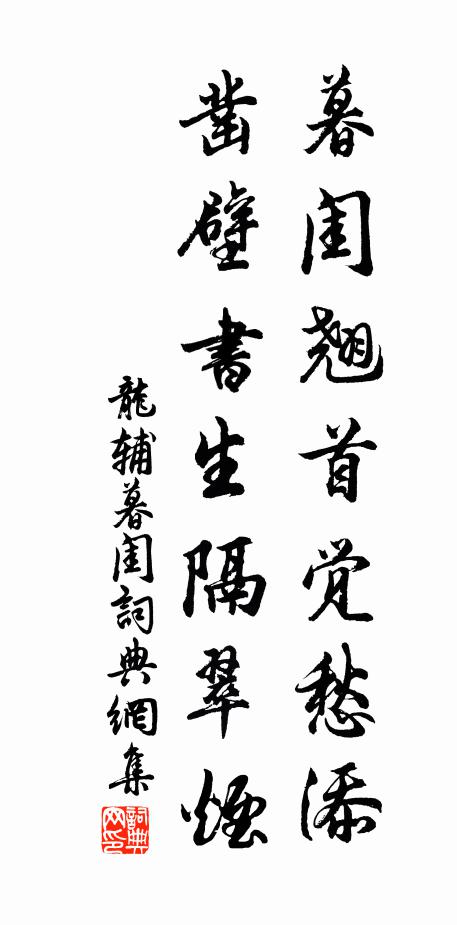 暮闺翘首觉愁添
凿壁書生隔翠煙
龍辅暮闺詞典網集
詞典网印